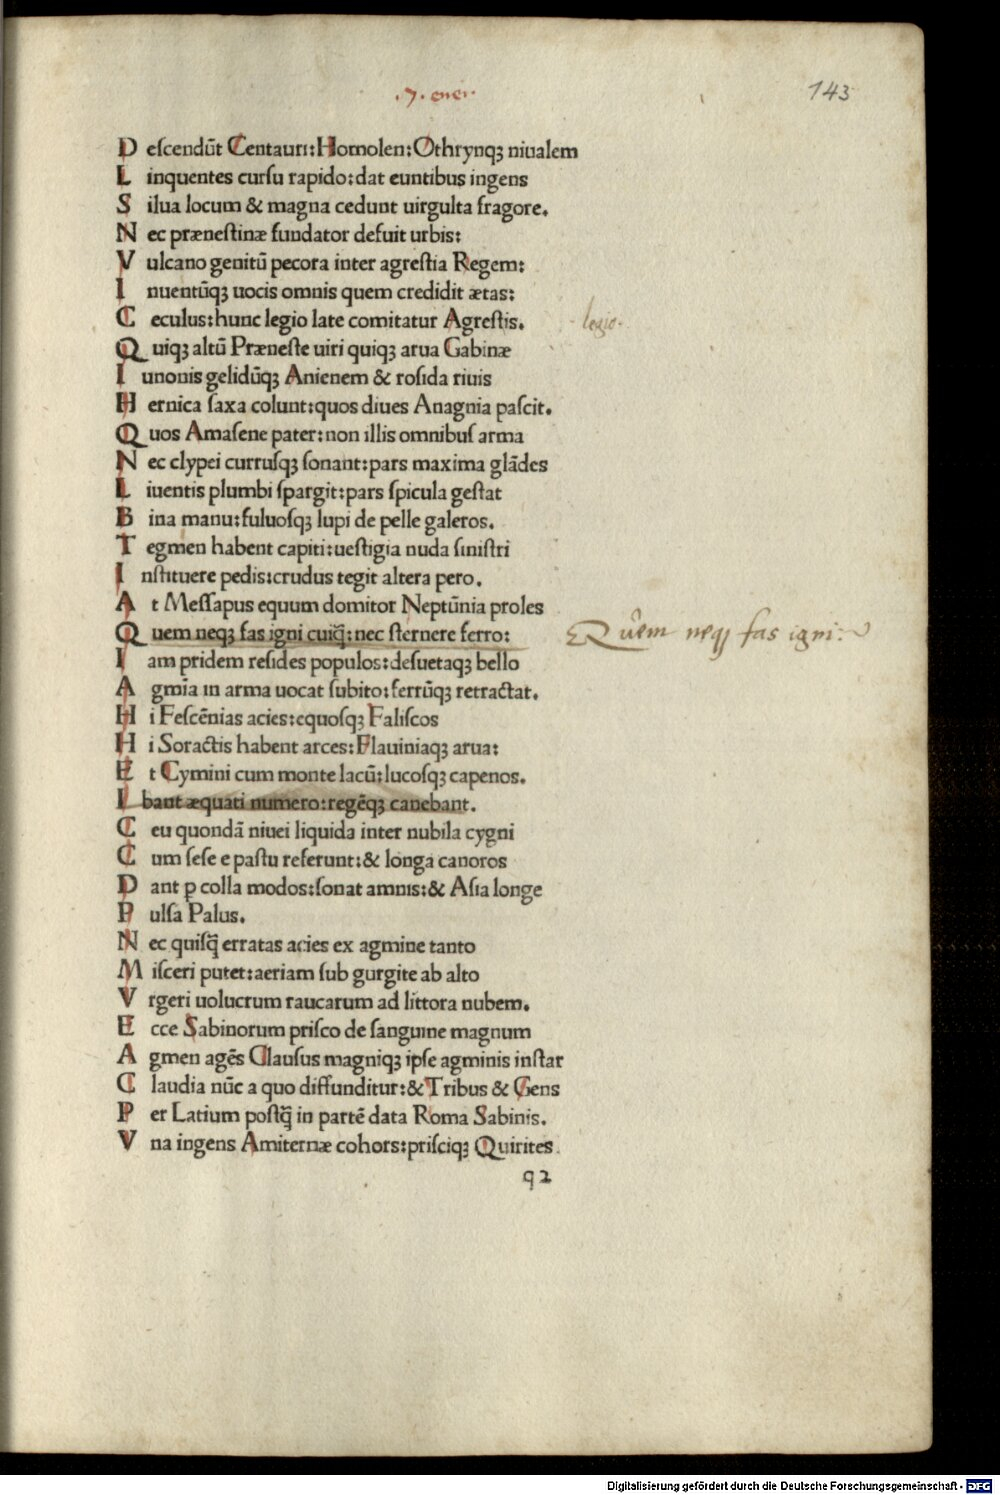 .7. enei.
143
D escendūt Centauri:Homolen:Othrynqꝫ niualem
L inquentes cursu rapido:dat euntibus ingens
S ilua locum & magna cedunt uirgulta fragore.
N ec prænestinæ fundator defuit urbis:
V ulcano genitū pecora inter agrestia Regem:
I nuentūqꝫ uocis omnis quem credidit ætas:
C eculus:hunc legio late comitatur Agrestis.
legio.
Q uiqꝫ altū Præneste uiri quiqꝫ arua Gabinæ
I unonis gelidūqꝫ Anienem & rosida riuis
H ernica saxa colunt:quos diues Anagnia pascit.
Q uos Amasene pater:non illis omnibus arma
N ec clypei currusqꝫ sonant:pars maxima glādes
L iuentis plumbi spargit:pars spicula gestat
B ina manu:fuluosqꝫ lupi de pelle galeros.
T egmen habent capiti:uestigia nuda sinistri
I nstituere pedis:crudus tegit altera pero.
A t Messapus equum domitor Neptūnia proles
Q uem neqꝫ fas igni cuiq̄:nec sternere ferro:
Quem neqꝫ fas igni:~
I am pridem resides populos:desuetaqꝫ bello
A gmīa in arma uocat subito:ferrūqꝫ retractat.
H i Fescēnias acies:equosqꝫ Faliscos
H i Soractis habent arces:Flauiniaqꝫ arua:
E t Cymini cum monte lacū:lucosqꝫ capenos.
I bant æquati numero:regēqꝫ canebant.
C eu quondā niuei liquida inter nubila cygni
C um sese e pastu referunt:& longa canoros
D ant ꝑ colla modos:sonat amnis:& Asia longe
P ulsa Palus.
N ec quisq̄ erratas acies ex agmine tanto
M isceri putet:aeriam sub gurgite ab alto
V rgeri uolucrum raucarum ad littora nubem.
E cce Sabinorum prisco de sanguine magnum
A gmen agēs Clausus magniqꝫ ipse agminis instar
C laudia nūc a quo diffunditur:& Tribus & Gens
P er Latium postq̄ in partē data Roma Sabinis.
V na ingens Amiternæ cohors:prisciqꝫ Quirites.
q2
Digitalisierung gefördert durch die Deutsche Forschungsgemeinschaft - DFG